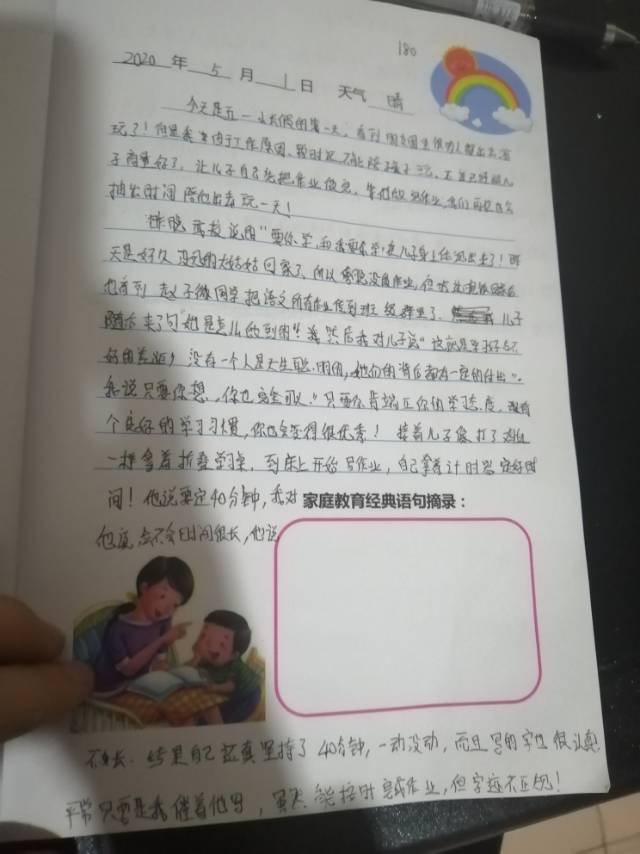 180
2020 年 5 月 1 日 天气 晴
今天是五一小长假的第一天,看到朋友圈里很多人都出去游
玩了!但是我
子商量好了,让儿子自己先把作业做完,
抽出时间陪他出去玩一天!
"要你学,和我要学"是儿子身上体现出来了!昨
天是好久没见的大姑姑回家了,所以
也看到赵子微同学把语文所有作业传到班级群里了. 儿子
随口来了句"她是怎么做到的"!我然后我对儿子说"这就是学习好与不
好的差距,没有一个人是天生聪明的,她们的背后都有一定的付出".
我说只要你想,你也完全可以."只要你肯端正你的学习态度,
个良好的学习习惯,你也会变得很优秀!接着儿子像打了鸡血
一样拿着折叠学习桌,到床上开始写作业,自己拿着计时器定好时
间!他说要定40分钟,我对
他说会不会时间很长,他说
家庭教育经典语句摘录:
不长.结果自己认真坚持了40分钟,一动没动,而且写的字也很认真.
平常只要是我催着他写,虽然能按时完成作业,但字迹不工整!